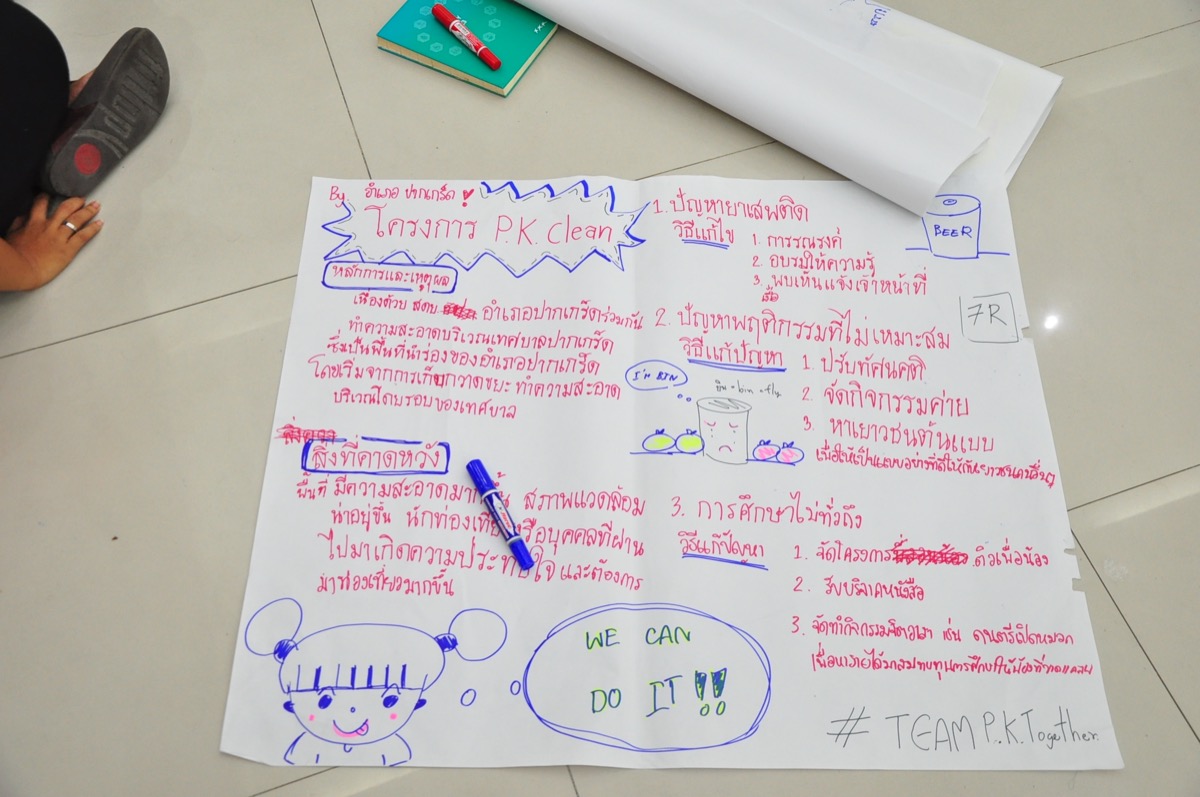 By อำเภอ ปากเกร็ด
โครงการ P.K. Clean
หลักการและเหตุผล
เนื่องด้วย สดบ อำเภอปากเกร็ดร่วมกัน
ทำความสะอาดบริเวณเทศบาลปากเกร็ด
ซึ่งเป็นพื้นที่นำร่องของอำเภอปากเกร็ด
โดยเริ่มจากการเก็บกวาดขยะ ทำความสะอาด
บริเวณโดยรอบของเทศบาล
สิ่งที่คาดหวัง
พื้นที่ มีความสะอาดมาก สภาพแวดล้อม
น่าอยู่ขึ้น นักท่องเที่ยว หรือบุคคลที่ผ่าน
ไปมาเกิดความประทับใจ และต้องการ
มาท่องเที่ยวมากขึ้น
WE CAN
DO IT !!
1. ปัญหายาเสพติด
วิธีแก้ไข
1. การรณรงค์
2. อบรมให้ความรู้
3. พบเห็นแจ้งเจ้าหน้าที่
BEER
7R
2. ปัญหาพฤติกรรมที่ไม่เหมาะสม
วิธีแก้ปัญหา
1. ปรับทัศนคติ
2. จัดกิจกรรมค่าย
3. หาเยาวชนต้นแบบ
เพื่อให้เป็นแบบอย่างที่ดีให้กับเยาวชนคนอื่นๆ
I'M BIN
บิน = bin = fly
3. การศึกษาไม่ทั่วถึง
วิธีแก้ปัญหา
1. จัดโครงการ ติวเพื่อน้อง
2. รับบริจาคหนังสือ
3. จัดทำกิจกรรมจิตอาสา เช่น ดนตรีเปิดหมวก
เพื่อหารายได้มาสมทบทุนการศึกษาให้น้องที่ขาดแคลน
# TEAM P.K.Together.